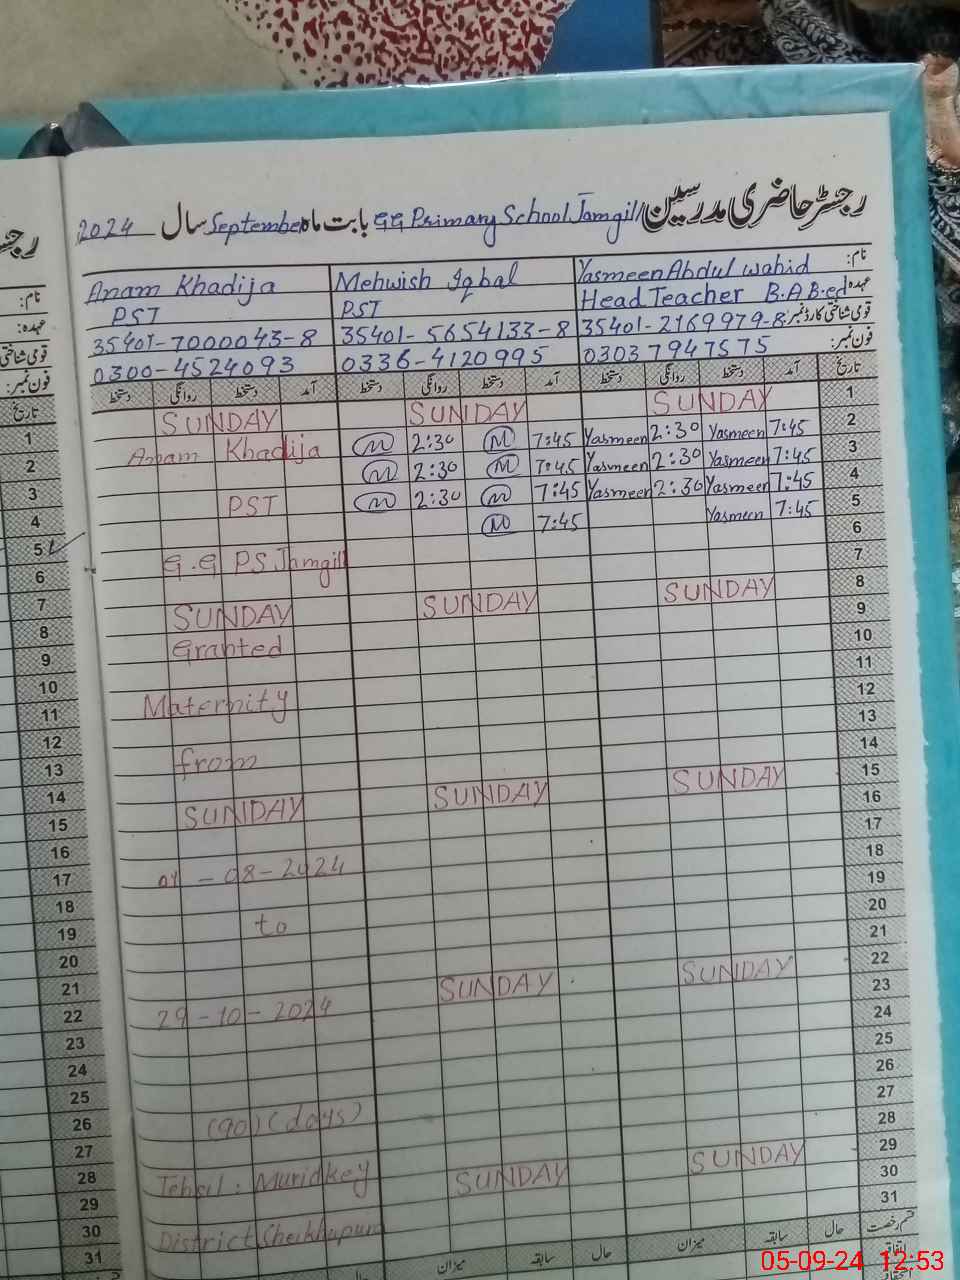 رجسٹر حاضری مدرسین G.G Primary School Jamgill بابت ماہ September سال 2024
نام: Yasmeen Abdul Wahid Mehwish Iqbal Anam Khadija
عہدہ Head Teacher B.A B.ed PST PST
قومی شناختی کارڈ نمبر 35401-2169979-8 35401-5654133-8 35401-7000043-8
فون نمبر: 03037947575 0336-4120995 0300-4524093
تاریخ آمد دستخط روانگی دستخط آمد دستخط روانگی دستخط آمد دستخط روانگی دستخط
1 SUNDAY SUNDAY SUNDAY
2 7:45 Yasmeen 2:30 Yasmeen 7:45 M 2:30 M Anam Khadija
3 7:45 Yasmeen 2:30 Yasmeen 7:45 M 2:30 M
4 7:45 Yasmeen 2:30 Yasmeen 7:45 M 2:30 M PST
5 7:45 Yasmeen 7:45 M
6 G.G PS Jamgill
7
8 SUNDAY SUNDAY SUNDAY
9 Granted
10
11 Maternity
12
13 from
14
15 SUNDAY SUNDAY SUNDAY
16
17 01-08-2024
18
19 to
20
21
22 SUNDAY SUNDAY
23 29-10-2024
24
25
26 (90) (days)
27
28
29 SUNDAY SUNDAY Tehsil: Muridkey
30
31 District Sheikhupura
قسم رخصت حال سابقہ میزان حال سابقہ میزان حال
اتفاقیہ
رجس
نام:
عہدہ:
قومی شناختی
فون نمبر:
تاریخ
1
2
3
4
5
6
7
8
9
10
11
12
13
14
15
16
17
18
19
20
21
22
23
24
25
26
27
28
29
30
31
05-09-24 12:53